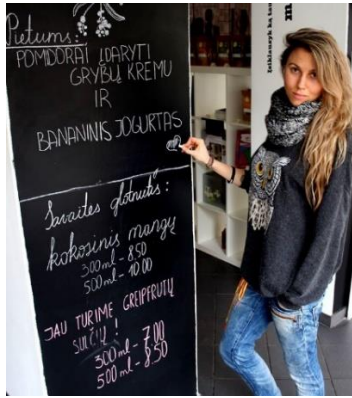 Pietums:
POMIDORAI ĮDARYTI
GRYBŲ KREMU
IR
BANANINIS JOGURTAS
Savaitės glotnutis:
kokosinis mangų
300 ml - 8.50
500 ml - 10.00
JAU TURIME GREIPFRUTŲ
SULČIŲ!
300 ml - 7.00
500 ml - 8.50
Įsiklausyk ką tau